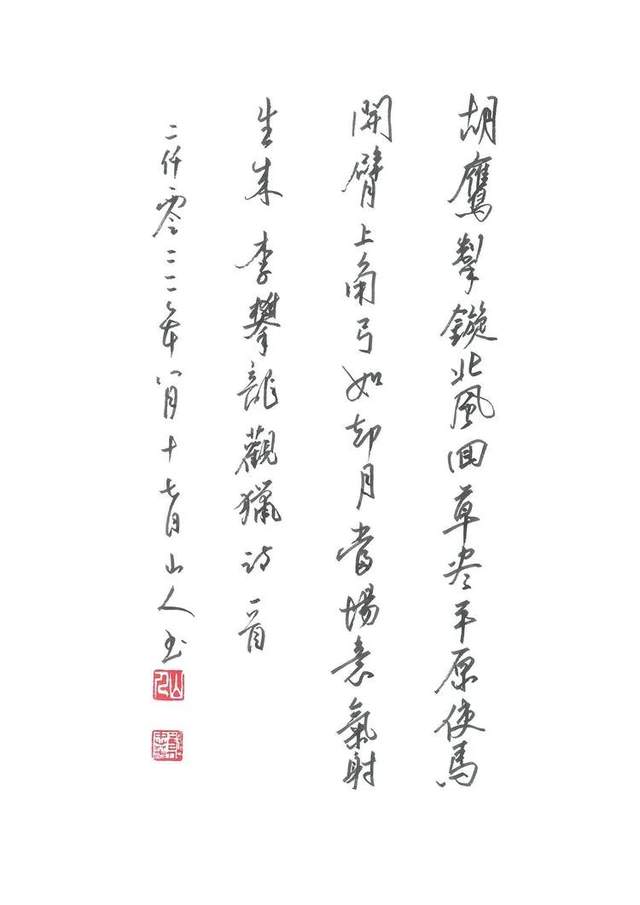 胡鷹掣鏇北風回草盡平原使馬
開臂上角弓如却月當場意氣射
生来 李攀龍觀獵詩一首
二仟零二二年八月十七日山人書
山人